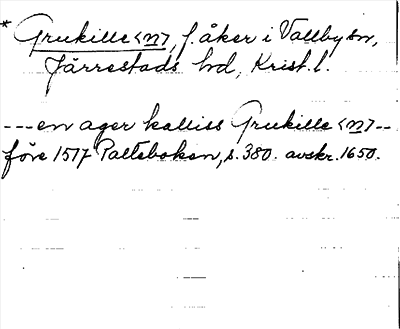 * Grukille <n>, f. åker i Vallby sn,
Järrestads hd, Krist. l.
---en ager kalliss Grukille <n>--
före 1517 Palteboken, s. 380. avskr. 1650.